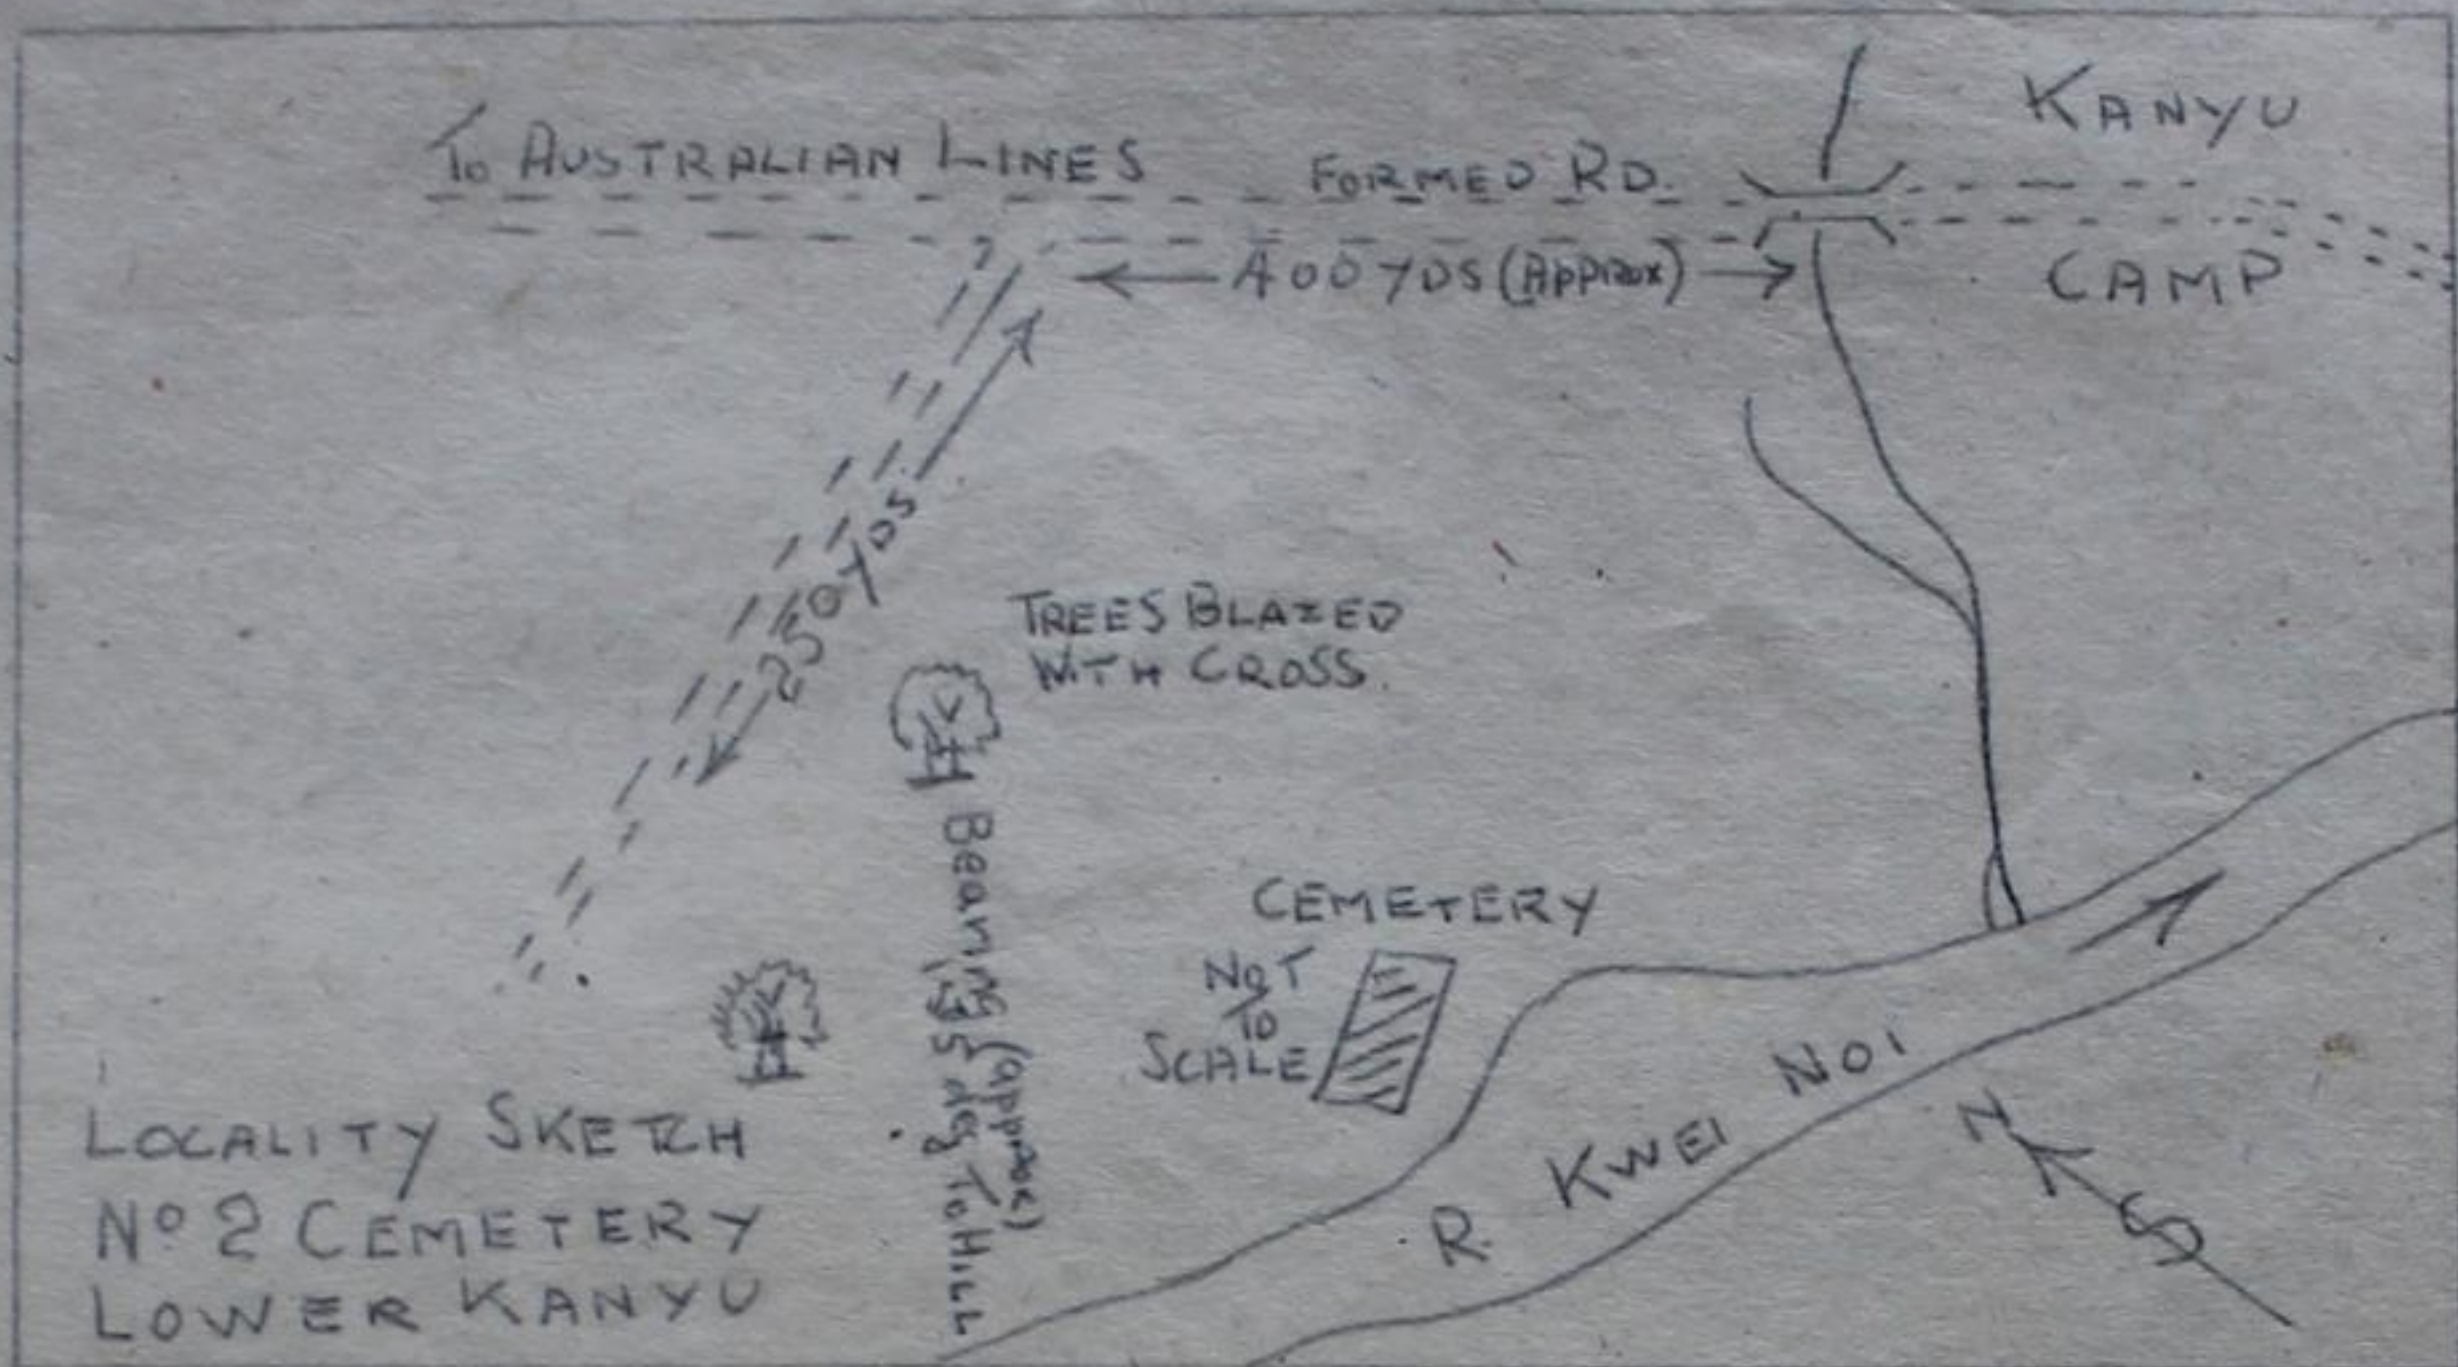 KANYU
To AUSTRALIAN LINES
FORMED RD.
400 YDS (Approx)
CAMP
250 YDS
TREES BLAZED
WITH CROSS.
Bearing (approx)
deg To HILL
CEMETERY
NOT
TO
SCALE
R. KWEI NOI
N
S
LOCALITY SKETCH
No 2 CEMETERY
LOWER KANYU